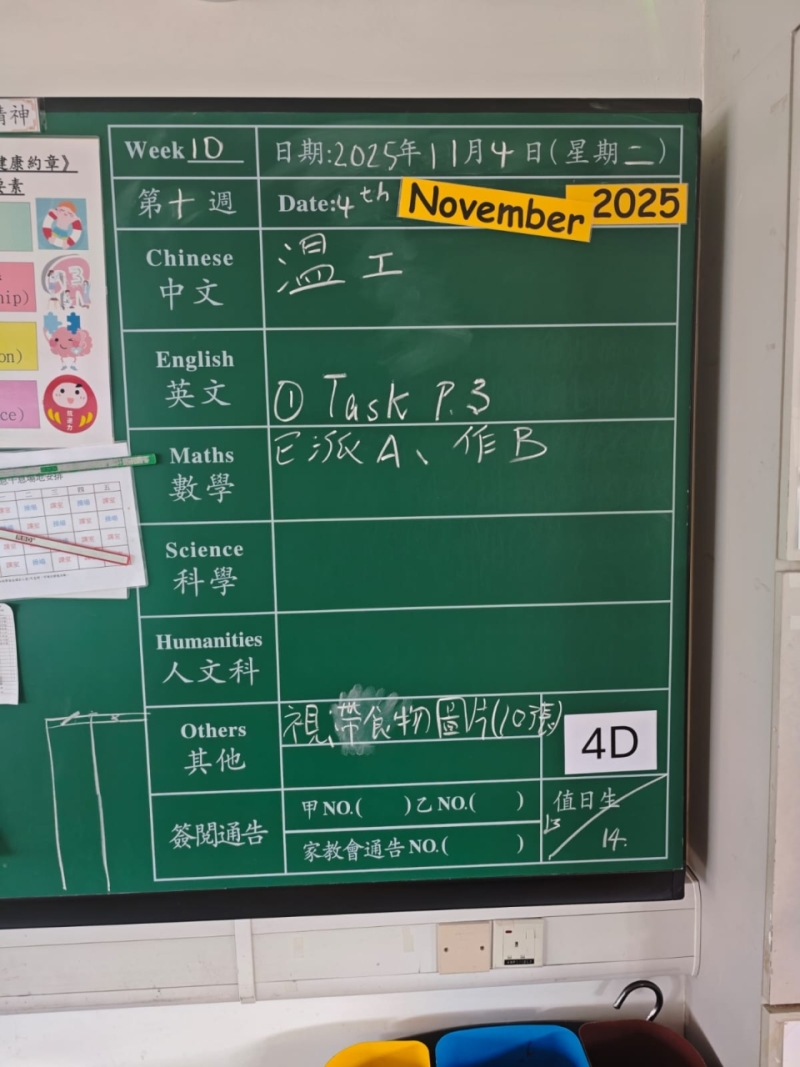 精神
健康約章》
要素
Week 10
日期:2025年11月4日(星期二)
第十週
Date:4th November 2025
Chinese
中文
溫工
English
英文
① Task P.3
Maths
數學
已派A、作B
Science
科學
Humanities
人文科
Others
其他
視:帶食物圖片(10張)
4D
簽閱通告
甲NO.( )乙NO.( )
家教會通告NO.( )
值日生
13
14.
hip)
on)
ce)